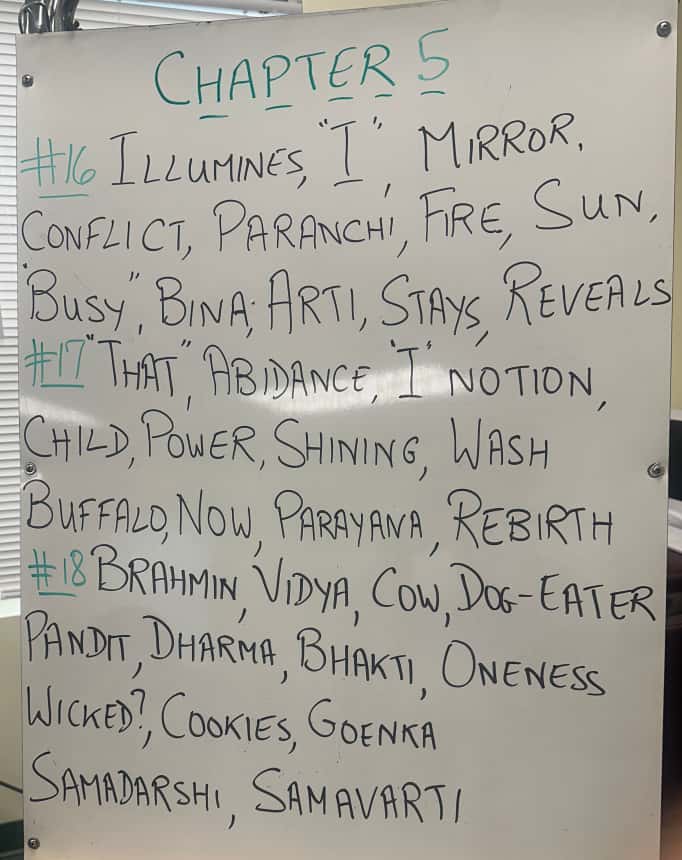 CHAPTER 5
#16 ILLUMINES, "I", MIRROR,
CONFLICT, PARANCHI, FIRE, SUN,
"BUSY", BINA; ARTI, STAYS, REVEALS
#17 "THAT", ABIDANCE, 'I' NOTION,
CHILD, POWER, SHINING, WASH
BUFFALO, NOW, PARAYANA, REBIRTH
#18 BRAHMIN, VIDYA, COW, DOG-EATER
PANDIT, DHARMA, BHAKTI, ONENESS
WICKED?, COOKIES, GOENKA
SAMADARSHI, SAMAVARTI